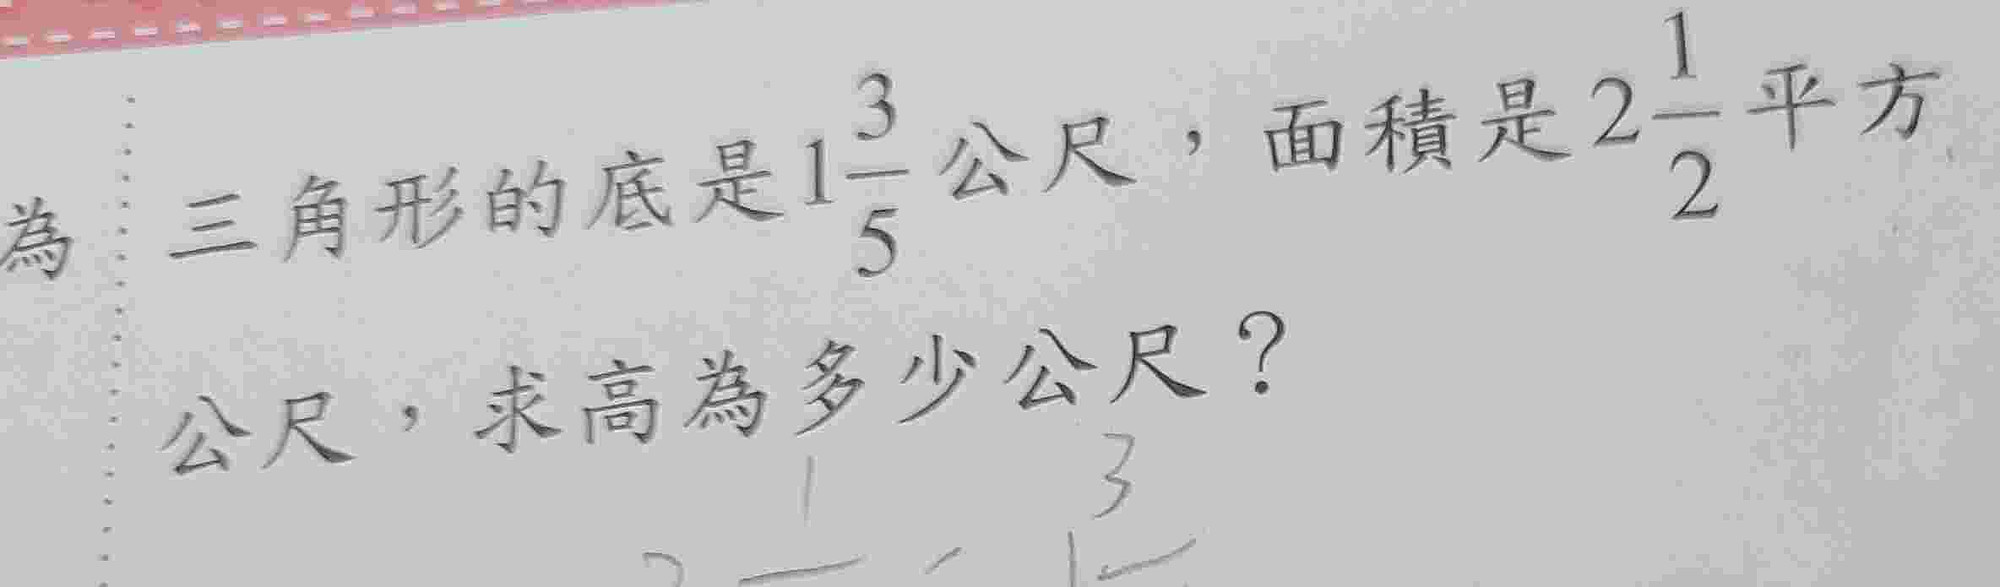 為
三角形的底是1 3/5 公尺，面積是2 1/2 平方
公尺，求高為多少公尺？
1 3